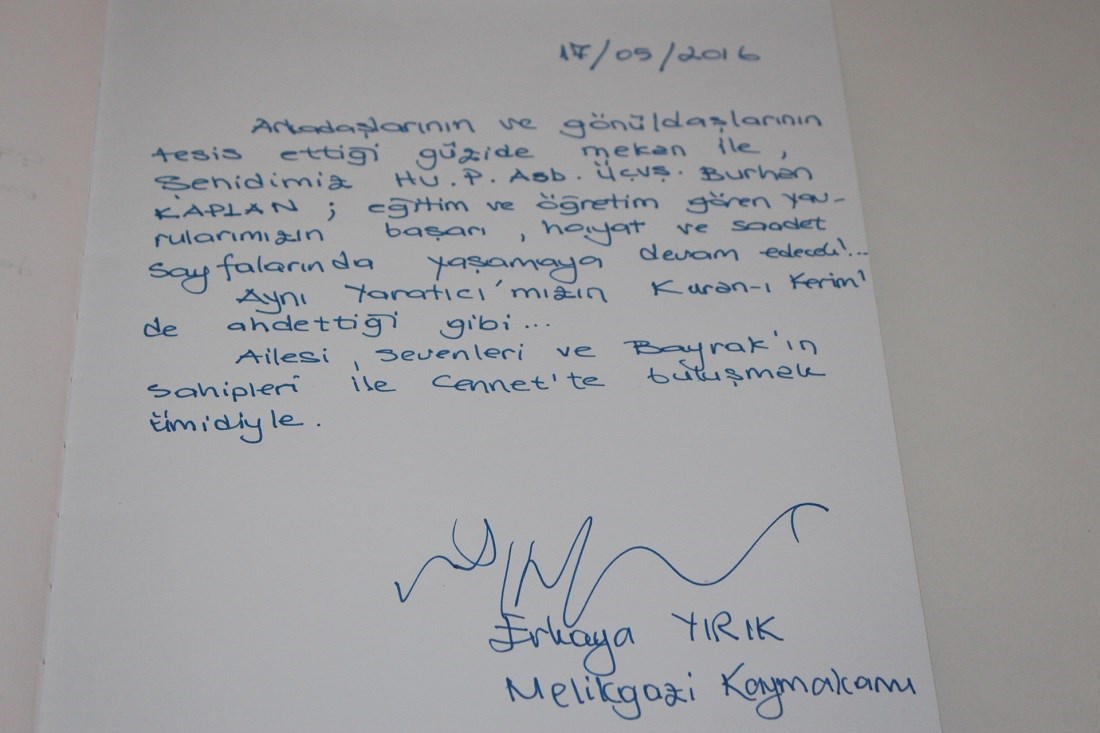 17/05/2016
Arkadaşlarının ve gönüldaşlarının
tesis ettiği güzide mekan ile,
Şehidimiz HV.P. Asb. Üçvş. Burhan
KAPLAN; eğitim ve öğretim gören yav-
rularımızın başarı, hayat ve saadet
sayfalarında yaşamaya devam edecek!...
Aynı Yaratıcı'mızın Kuran-ı Kerim'
de ahdettiği gibi...
Ailesi, sevenleri ve Bayrak'ın
sahipleri ile Cennet'te buluşmak
ümidiyle.
Erkaya YIRIK
Melikgazi Kaymakamı